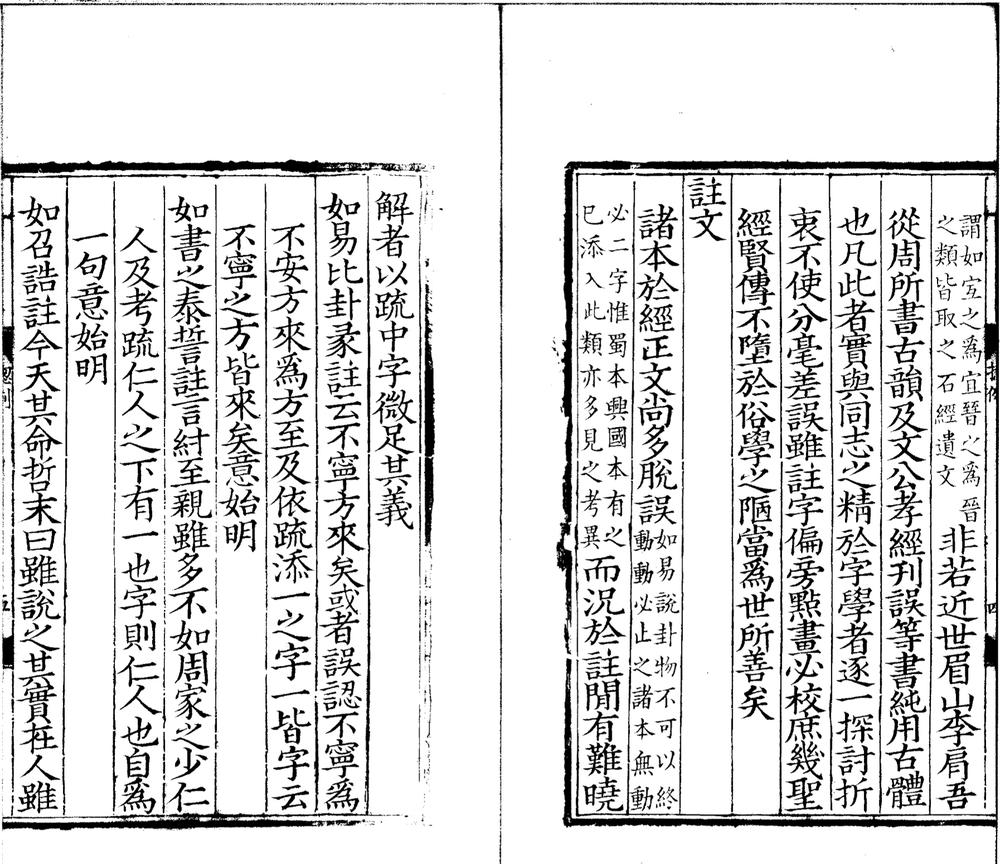 謂如宐之爲宜晉之爲晉
之類皆取之石經遺文
非若近世眉山李肩吾
從周所書古韻及文公孝經刊誤等書純用古體
也凡此者實與同志之精於字學者逐一探討折
衷不使分毫差誤雖註字偏旁點畫必校庶幾聖
經賢傳不墮於俗學之陋當爲世所善矣
註文
諸本於經正文尚多脫誤
如易說卦物不可以終
動動必止之諸本無動
必二字惟蜀本興國本有之
已添入此類亦多見之考異
而況於註閒有難曉
解者以䟽中字微足其義
如易比卦彖註云不寧方來矣或者誤認不寧爲
不安方來爲方至及依䟽添一之字一皆字云
不寧之方皆來矣意始明
如書之泰誓註言紂至親雖多不如周家之少仁
人及考䟽仁人之下有一也字則仁人也自爲
一句意始明
如召誥註今天其命哲末曰雖說之其實在人雖